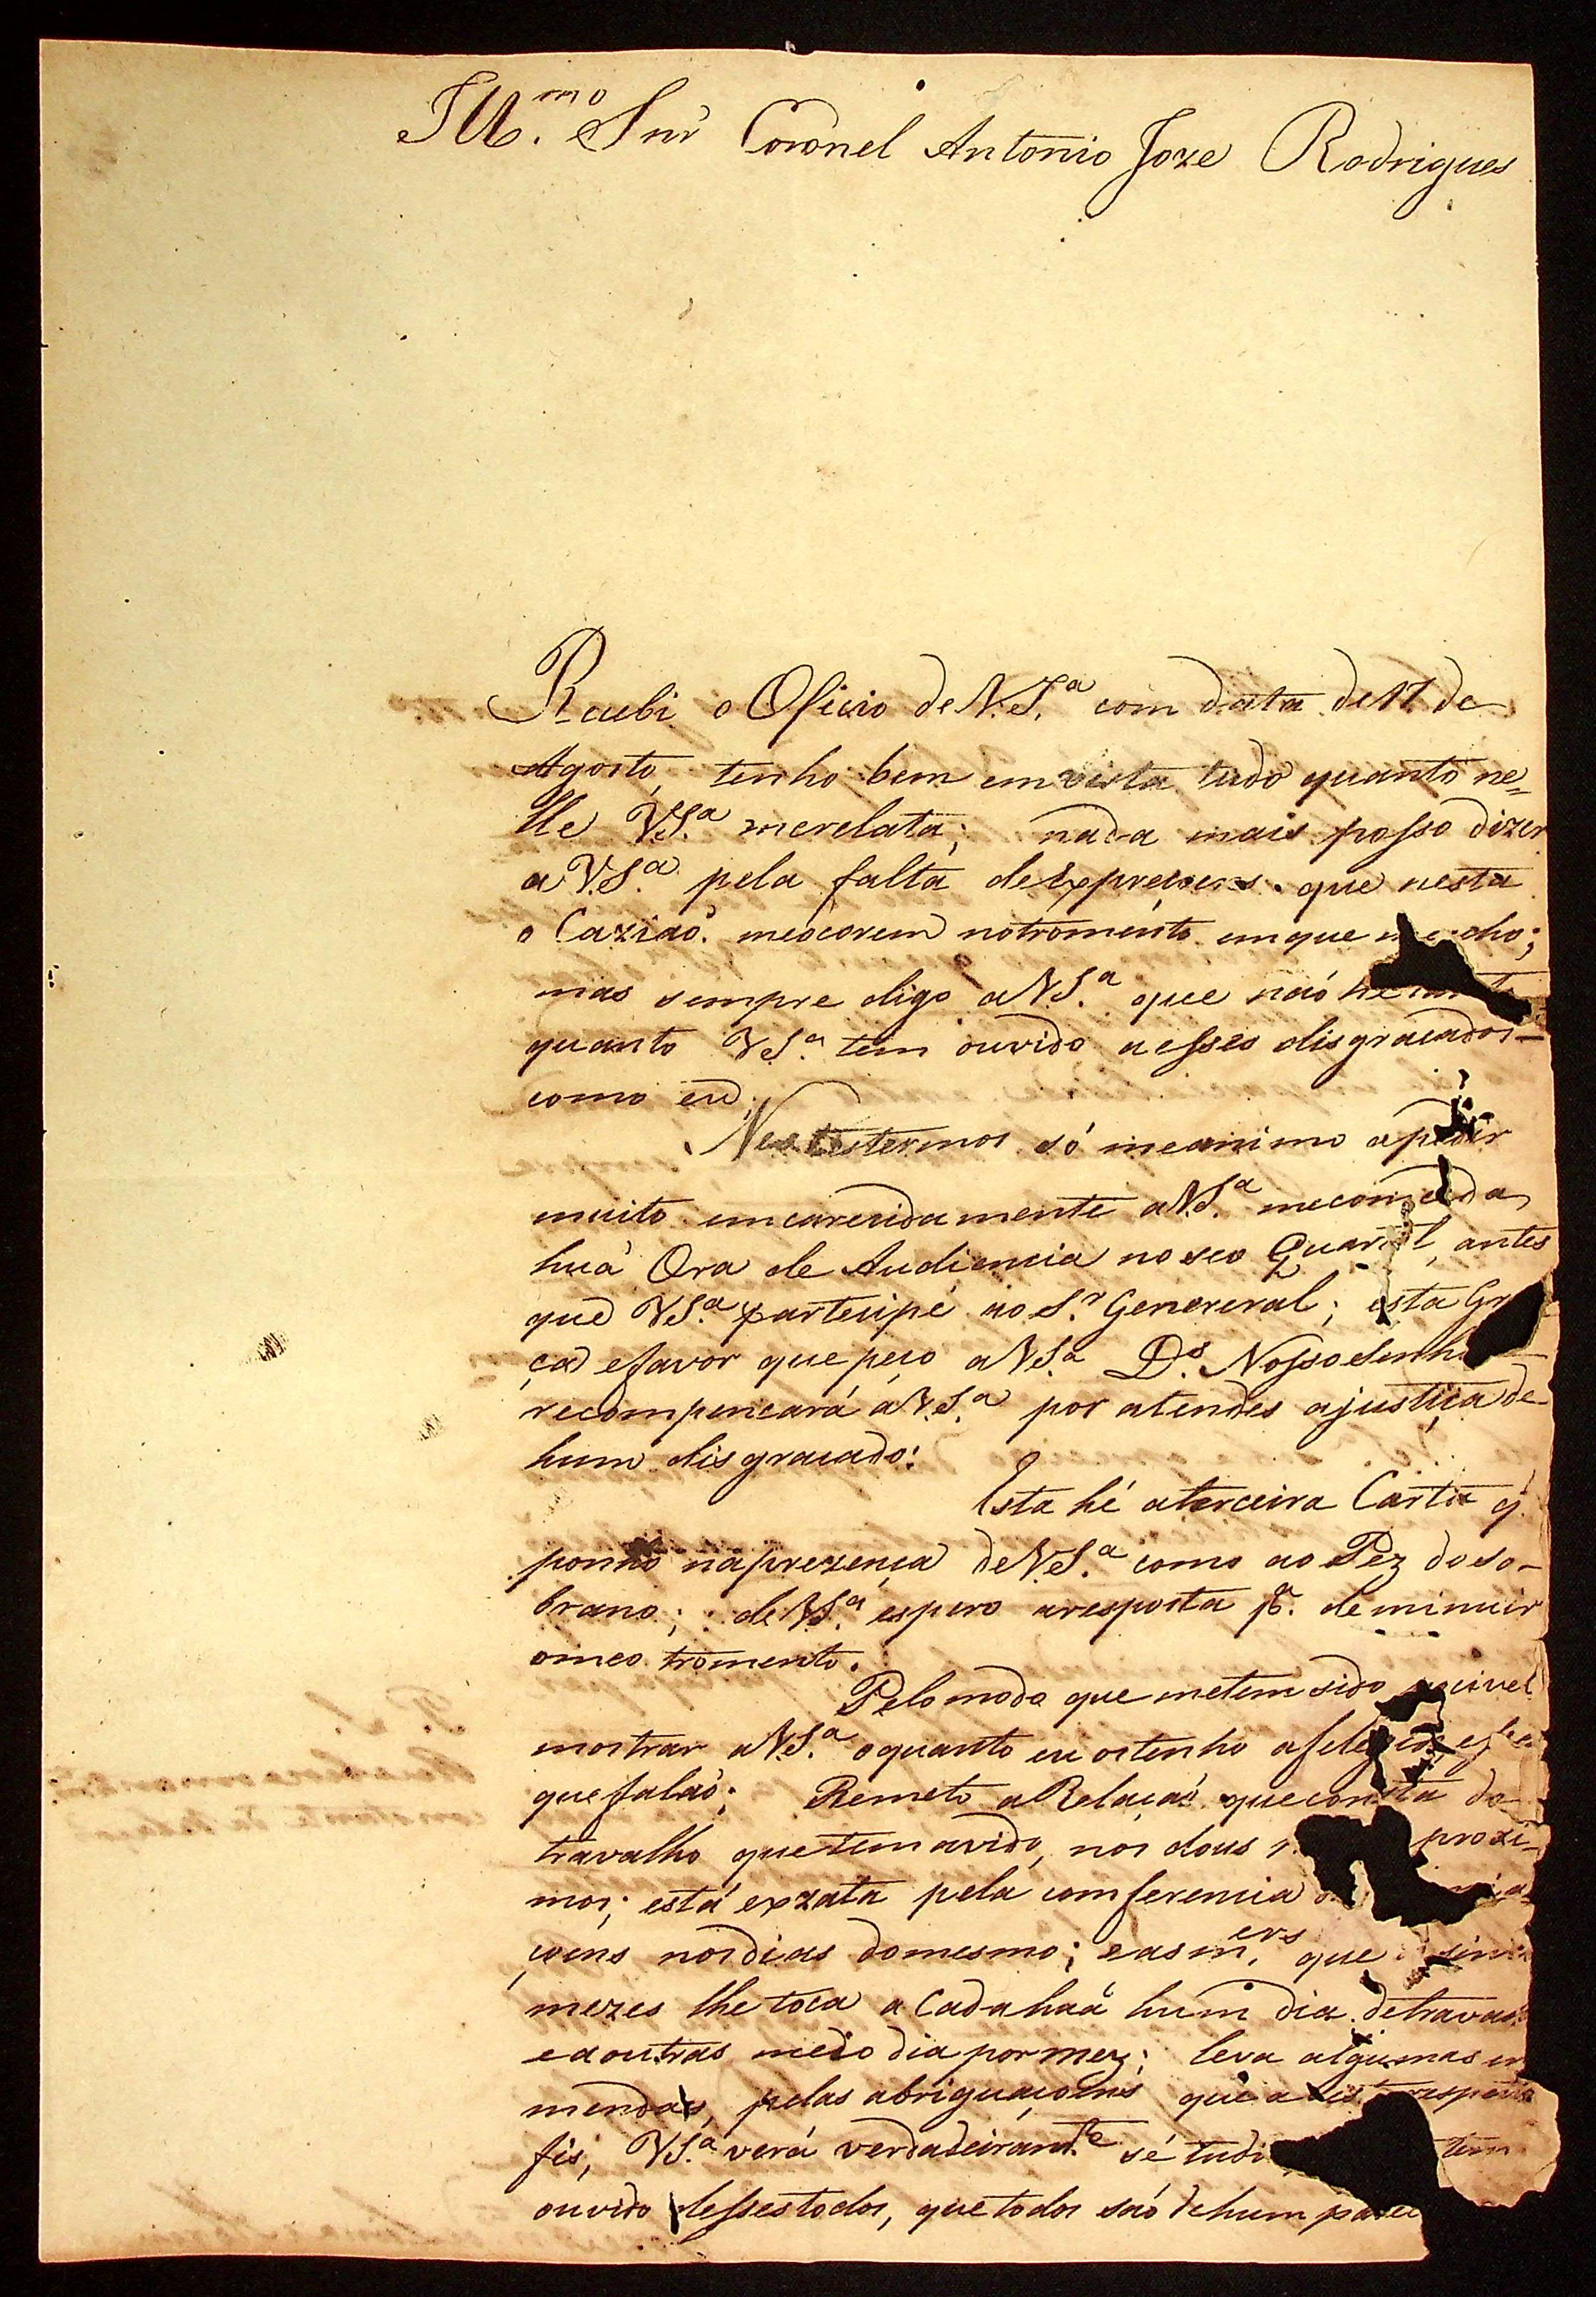 Ill.mo Snr Coronel Antonio Joze Rodrigues
Recebi o Oficio de V.S.a com data de 17 de
Agosto, tenho bem em vista tudo quanto ne=
lle VS.a merelata; nada mais posso dizer
a V.S.a pela falta de que nesta
o Caziaõ. meocorem notromento emque
mas sempre digo a V.S.a que naó he
quanto V.S.a tem ouvido a esses disgracados
como eu.
Nestestermos só meanimo apedir
muito emcarecidamente a V.S.a meconceda
huã Ora de Audiencia no seo Quartel, antes
que VS.a partecipe ao S.r Genereral; esta Gra
ça efavor que peço a VS.a D.s Nosso Senhor
recompencará a V.S.a por atendes ajustiça de
hum disgracado:
Esta hé aterceira Carta q
ponho naprezença de V.S.a como ao Pez do so-
brano; de VS.a espero aresposta p.a deminuir
omeo tromento.
Pelo modo que metem sido
mostrar a V.S.a oquanto eu ostenho
que falaõ; Remeto a Relacaõ que consta do
travalho que tem avido, nos dous proxi-
mos; está exzata pela comferencia
çoens nosdias domesmo; easm.ers que
mezes lhe toca a Cada haã hum dia detravas.
eaoutras meio dia por mez; leva algumas en
mendas, pelas abriguaçoens que a respeito
fis, VS.a verá verdadeiram.te sé tudo tem
ouvido dessestodos, que todos saó dehum